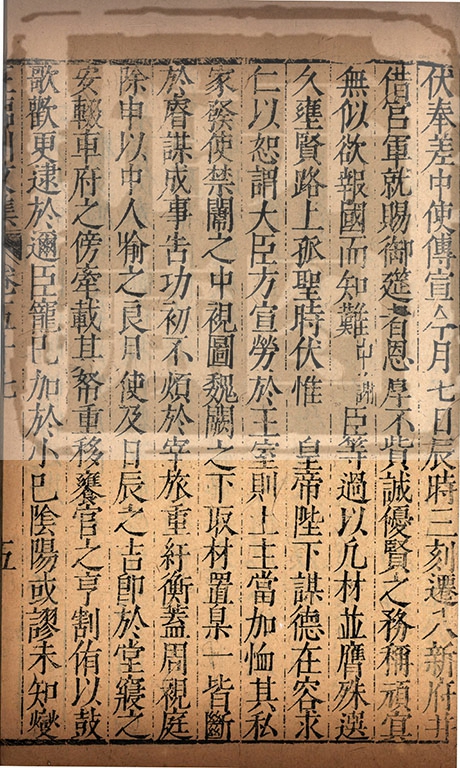 伏奉差中使傳宣今月七日辰時三刻遷入新府并
借官軍就賜御筵者恩厚不貲誠優賢之務稱頑宜
無似欲報國而知難中謝臣等過以凡材並膺殊選
久壅賢路上孤聖時伏惟 皇帝陛下謀德在容求
仁以恕謂大臣方宣勞於王室則上主當加恤其私
家發使禁闥之中視圖魏闕之下取材置臬一皆斷
於睿謀成事告功初不煩於宰旅重紆衡蓋周視庭
除申以中人喻之良日使及日辰之吉卽於堂寢之
安輟車府之傍牽載其帑重移饔官之亨割侑以鼓
歌歡更逮於邇臣寵已加於小已陰陽或謬未知燮
文集 卷五十七 五